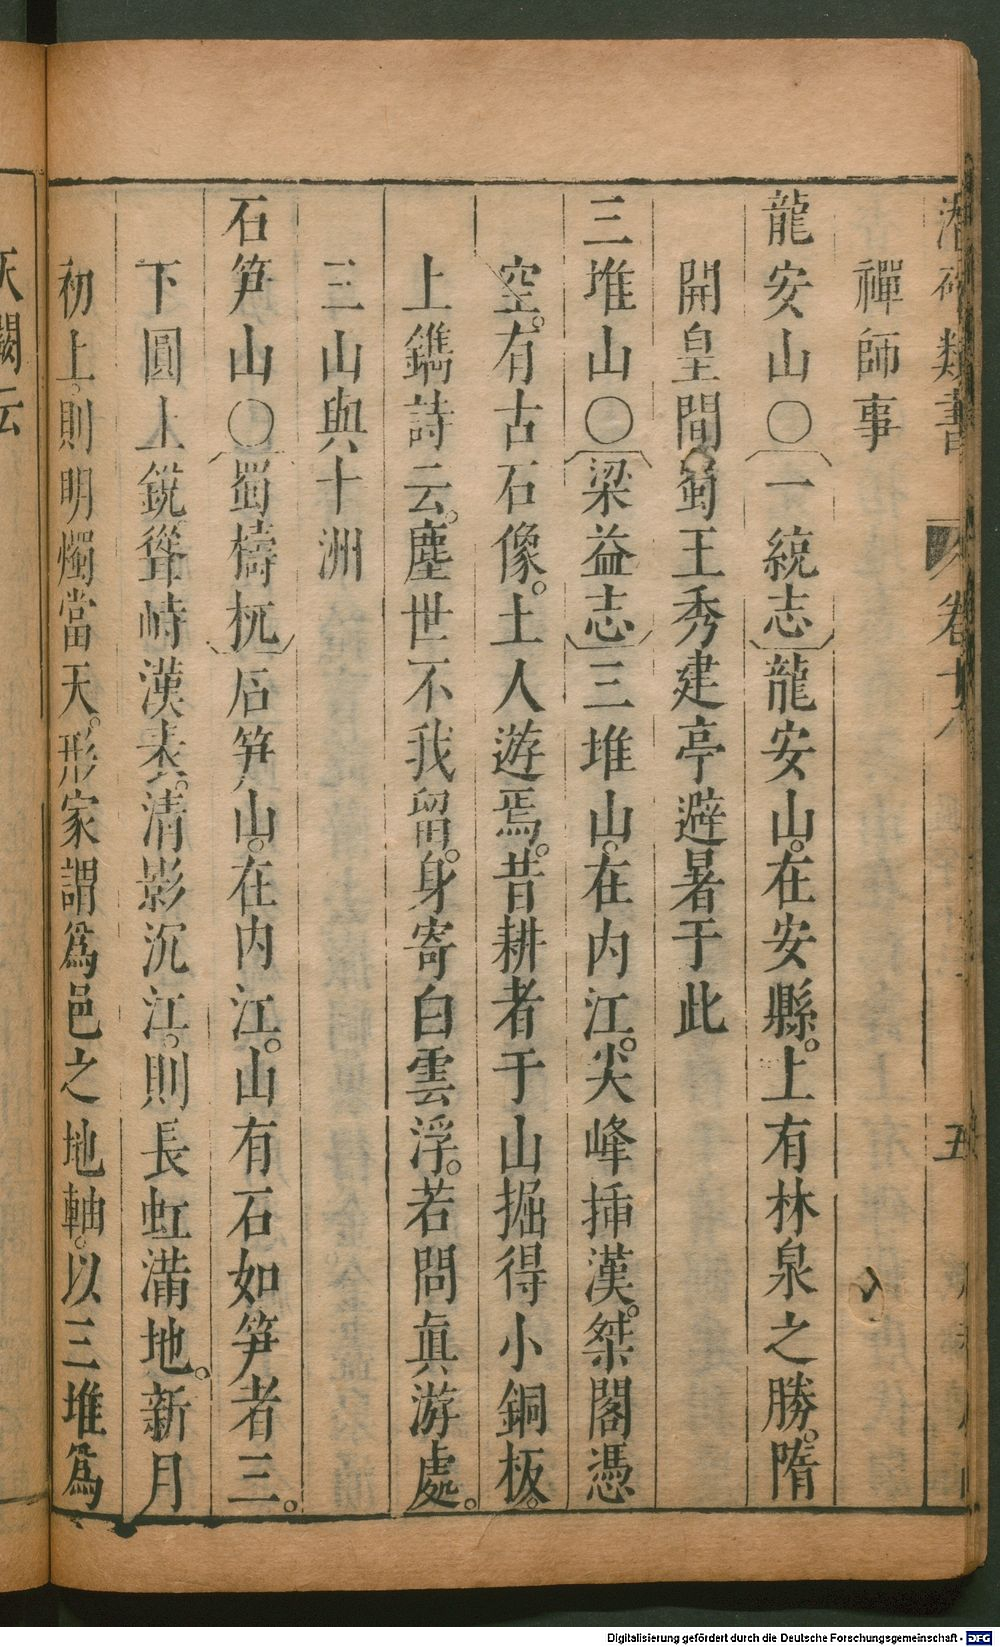 潛確類書 卷十八 五
禪師事
龍安山〇一統志龍安山。在安縣。上有林泉之勝。隋
開皇間蜀王秀建亭避暑于此
三堆山〇梁益志三堆山。在内江。尖峰揷漢。桀閣憑
空。有古石像。土人遊焉。昔耕者于山掘得小銅板。
上鐫詩云。塵世不我留。身寄白雲浮。若問眞游處。
三山與十洲
石笋山〇蜀檮杌石笋山。在内江。山有石如笋者三。
下圓上銳聳峙漢表。清影沉江。則長虹滿地。新月
初上。則明燭當天。形家謂爲邑之地軸。以三堆爲
天關云
Digitalisierung gefördert durch die Deutsche Forschungsgemeinschaft - DFG